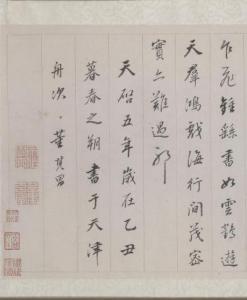 乍飛鍾繇書如雲鵠遊
天羣鴻戲海行間茂密
實亦難過耶
天啓五年歲在乙丑
暮春之朔書于天津
舟次 董其昌